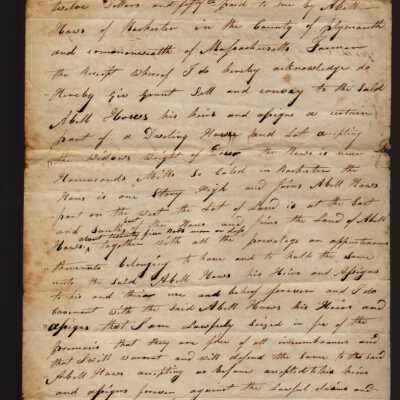 twelve Dollars and fifty paid to me by Abell
Haws of Rochester in the County of Plymouth
and commonwealth of Massachusetts Yeoman
the Receipt whereof I do hereby acknowledge do
Hereby Give Grant Sell and convay to the Said
Abell Hows his heirs and assigns a certain
part of a Dweling House and Lot excepting
the Widows Wright of the House is near
Hammonds Mills So Caled in Rochester the
Hous is one Story High and joins Abell Haws
part on the West the Lot of Land is at the East
and South part the Hous and joins the Land of Abell
about twenty five Rods more or less
Haws, together With all the previleges an appurtenances
thereunto belonging to have and to hold the same
unto the Said Abell Haws his Heirs and Assigns
to his and their use and behoof forever and I do
Covenant with the Said Abell Haws his Heirs and
assigns that I am Lawfully Seized in fee of the
premises that they are free of all incumbrances and
that I will warrant and will defend the Same to the said
Abell Haws excepting as before excepted to his heirs
and assigns forever against the Lawful claims and